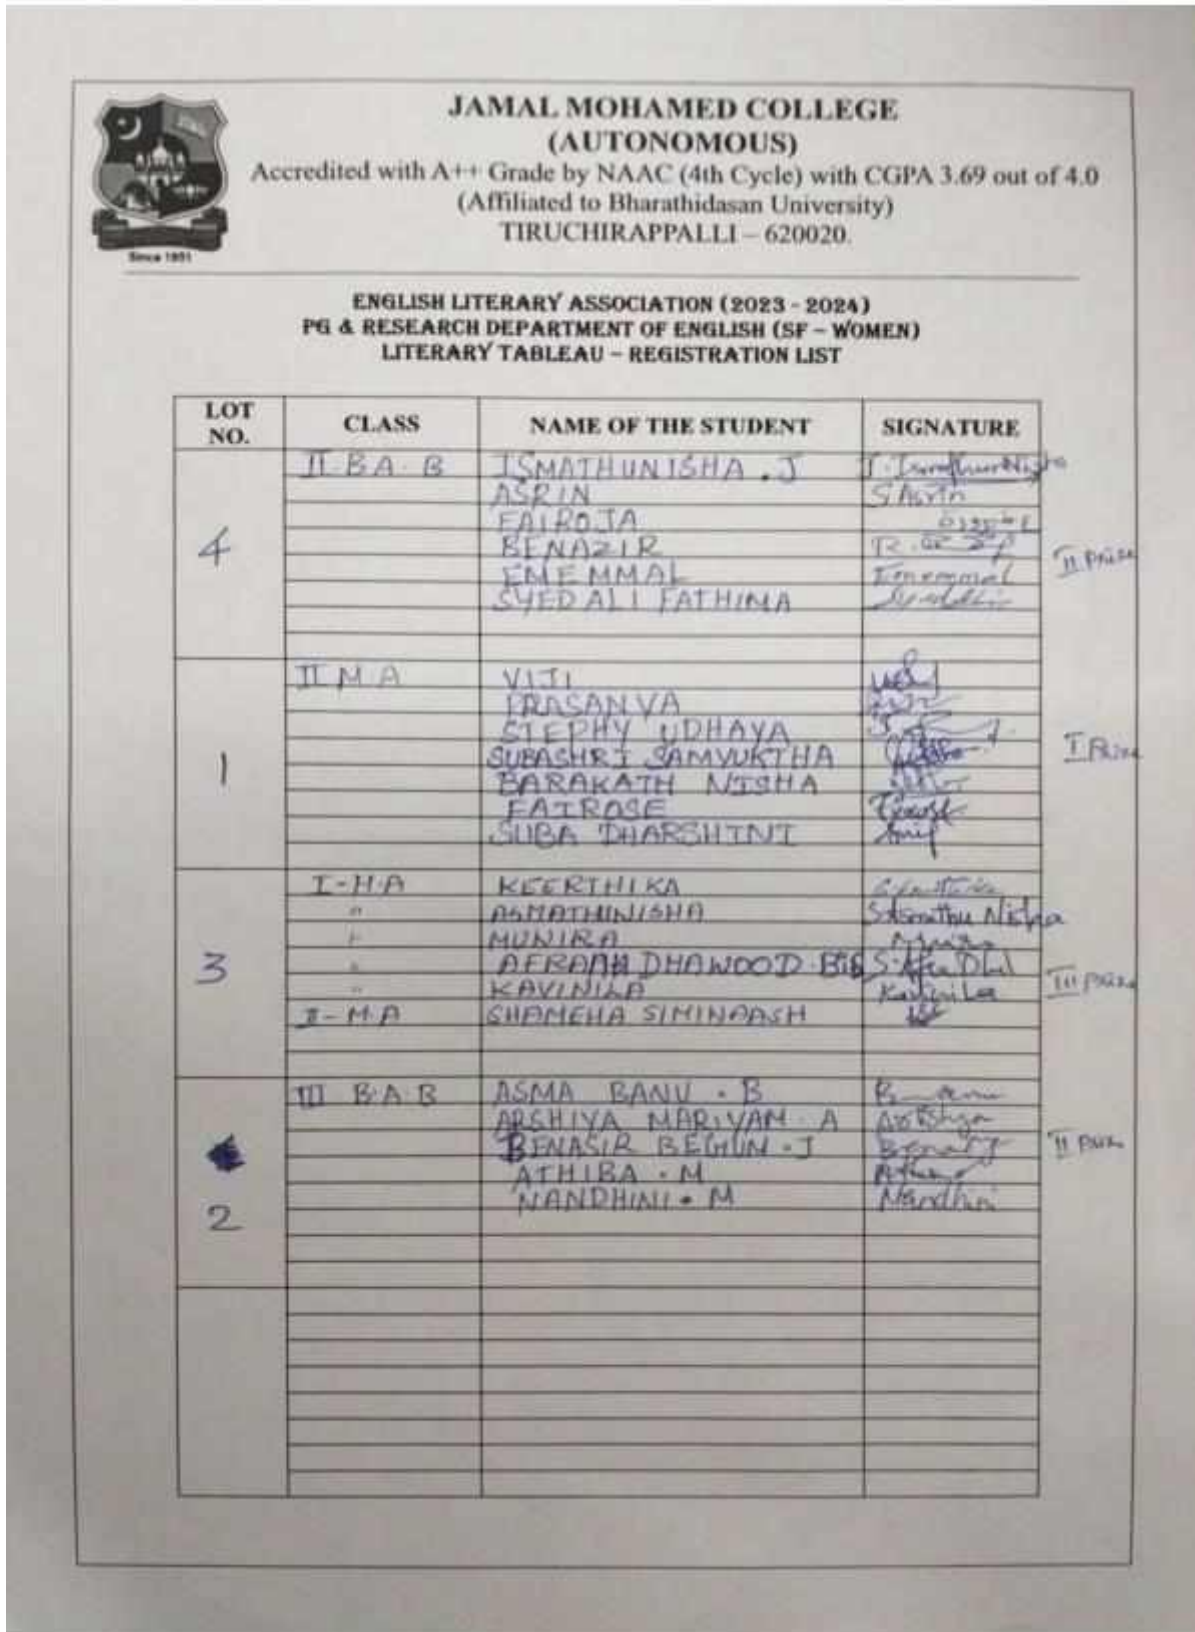 JAMAL MOHAMED COLLEGE
(AUTONOMOUS)
Accredited with A++ Grade by NAAC (4th Cycle) with CGPA 3.69 out of 4.0
(Affiliated to Bharathidasan University)
TIRUCHIRAPPALLI – 620020.
Since 1951
ENGLISH LITERARY ASSOCIATION (2023 - 2024)
PG & RESEARCH DEPARTMENT OF ENGLISH (SF – WOMEN)
LITERARY TABLEAU – REGISTRATION LIST
LOT NO. CLASS NAME OF THE STUDENT SIGNATURE
II-B.A.B ISMATHUNISHA . J
ASRIN S Asrin
FAIROJA
4 BENAZIR II Prize
EMEMMAL Ememmal
SYED ALI FATHIMA
II M.A VIJI
PRASANVA
STEPHY UDHAYA
SUBASHRI SAMYUKTHA I Prize
1 BARAKATH NISHA
FAIROSE
SUBA DHARSHINI
I-M.A KEERTHIKA
" ASMATHINISHA S.Asmathu Nisha
" MUNIRA
3 " AFRAAH DHAWOOD BIB
" KAVINILA Kavinila III Prize
II-M.A SHAMEHA SIMINAASH
III B.A.B ASMA BANU . B
ARSHIYA MARIYAM . A Arshiya
BENASIR BEGUN . J II Prize
ATHIBA . M
2 NANDHINI . M Nandhini